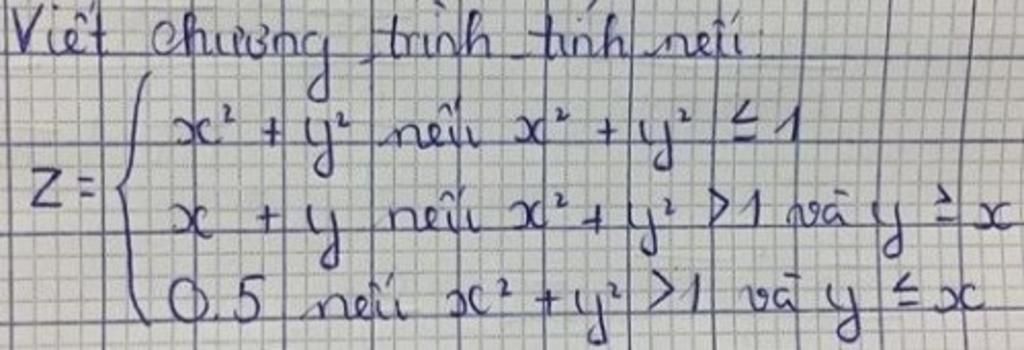 Viết chương trình tính nếu
x² + y² nếu x² + y² ≤ 1
Z = { x + y nếu x² + y² > 1 và y ≥ x
0.5 nếu x² + y² > 1 và y ≤ x